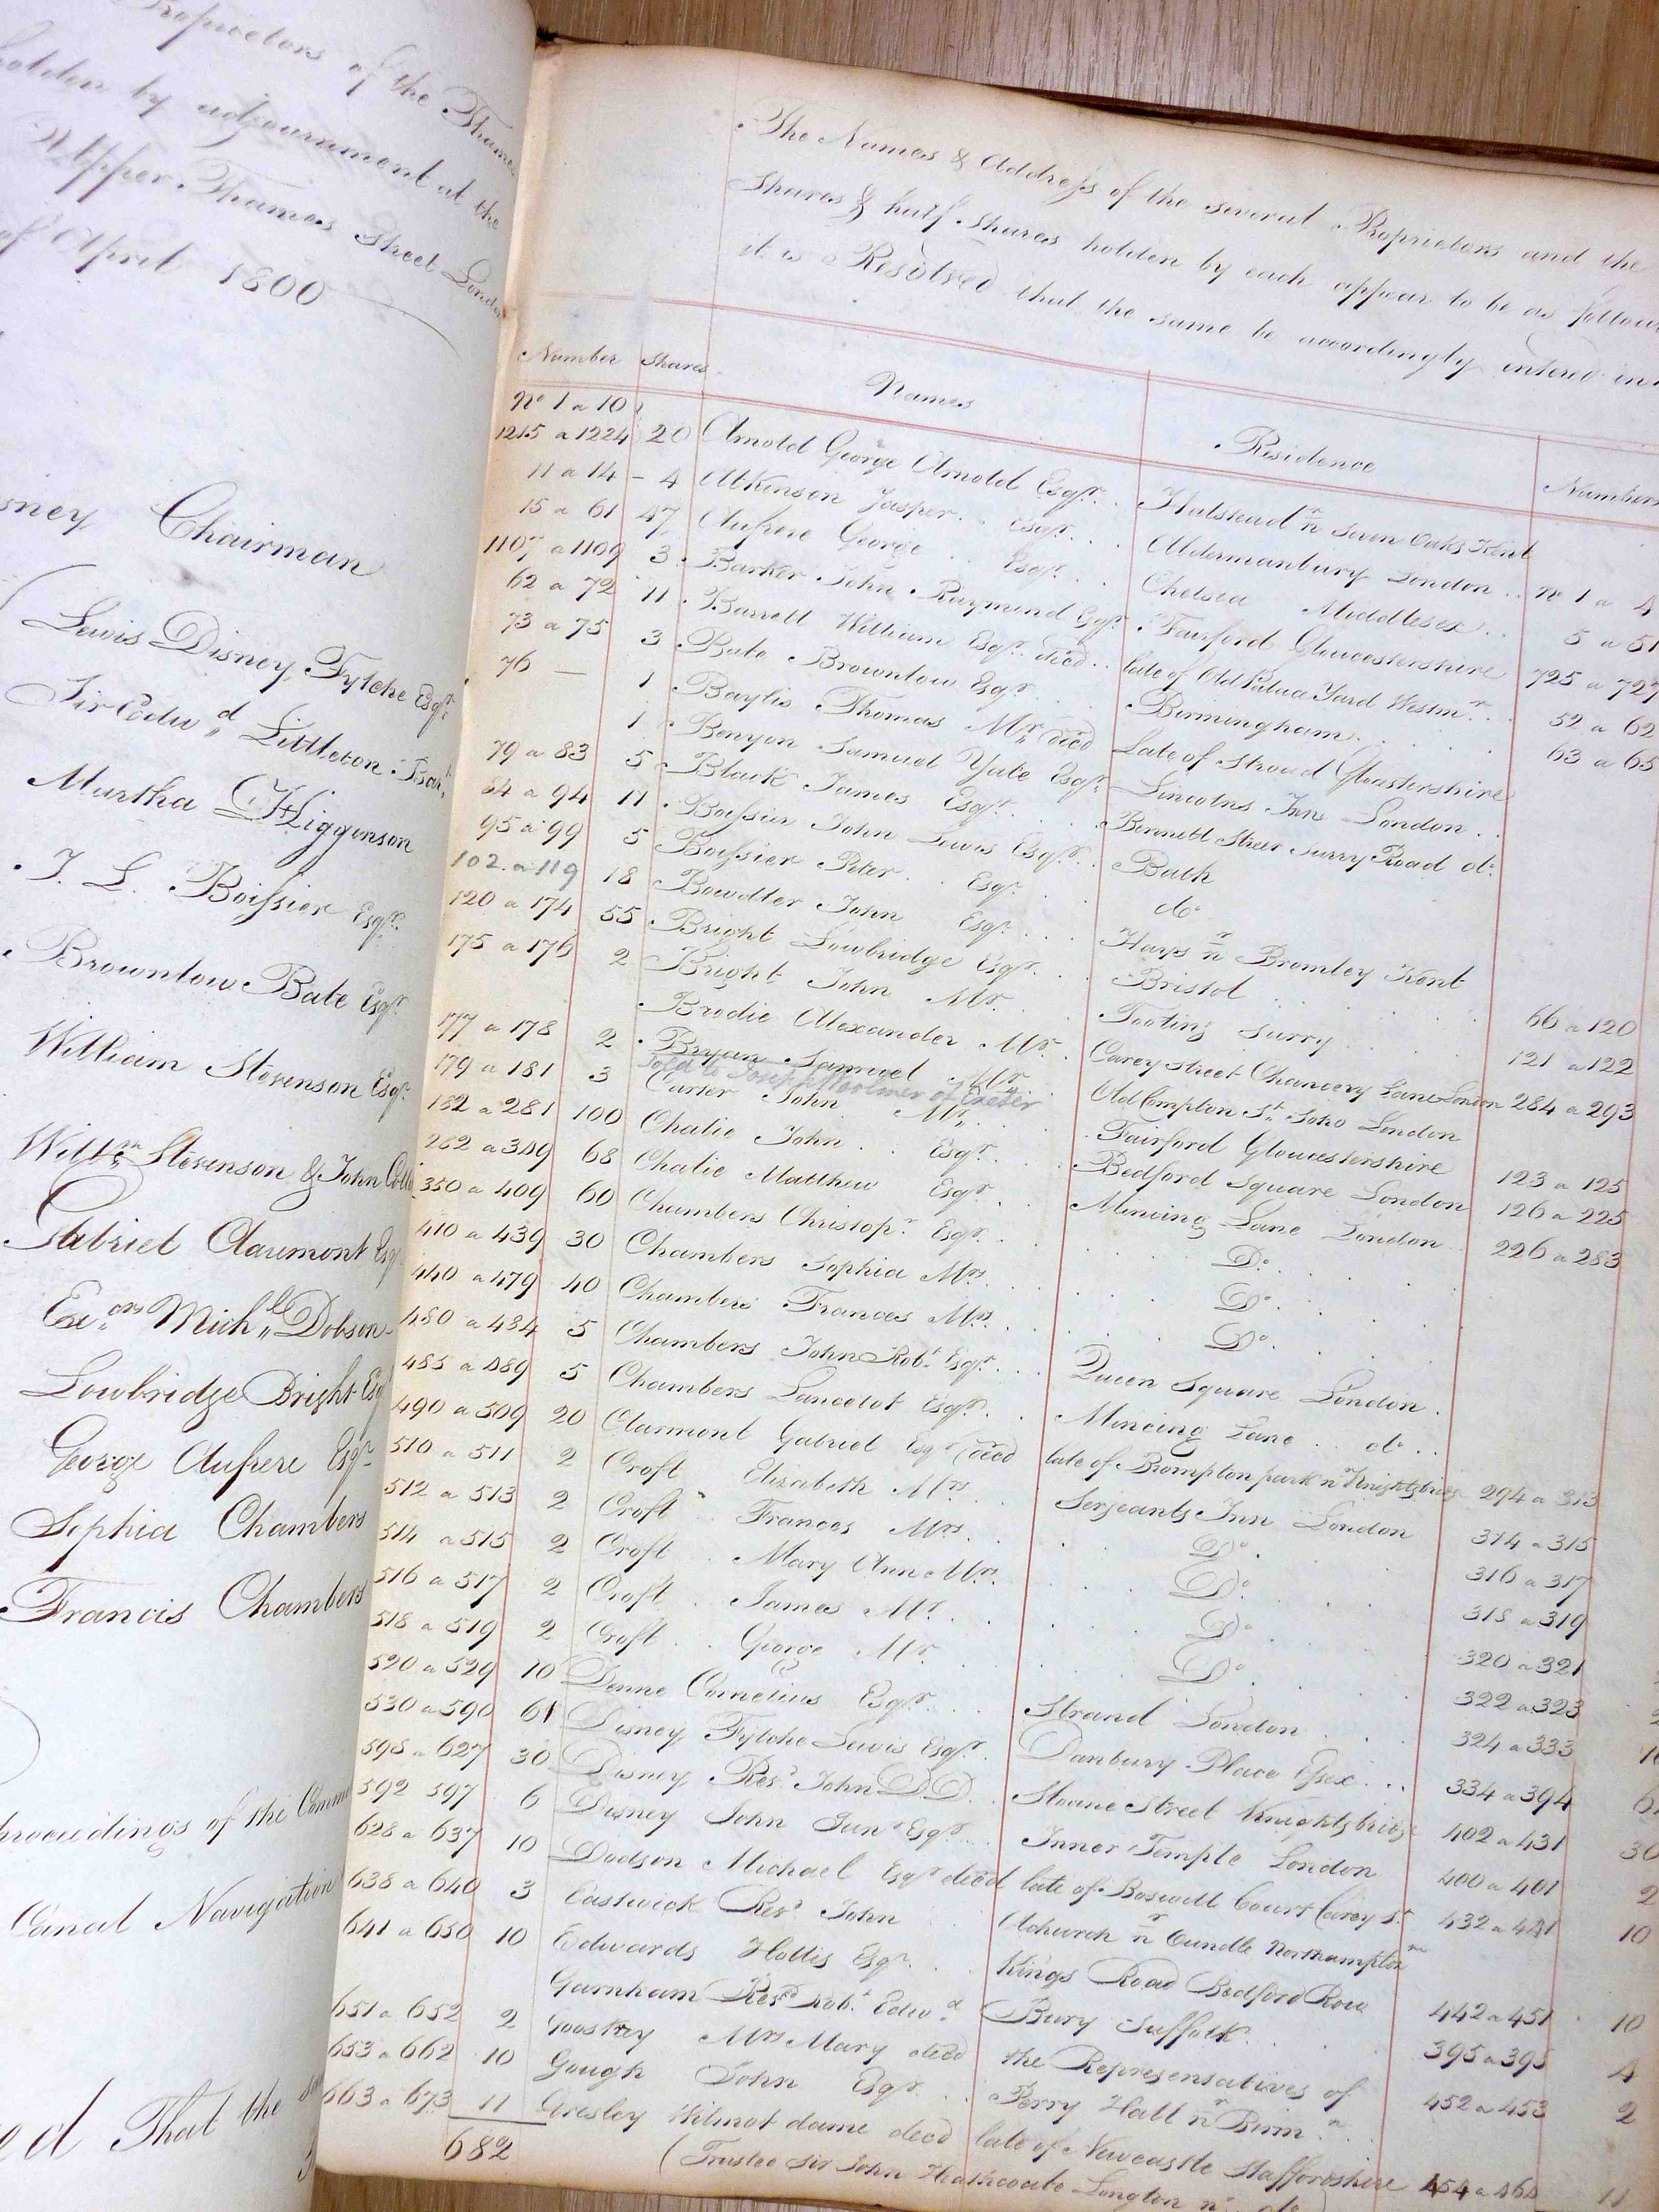 Proprietors of the Thames
holden by adjournment at the
Upper Thames Street London
of April 1800
Chairman
Lewis Disney Fytche Esqr.
Sir Edwd. Littleton Bart.
Martha Higginson
J. L. Boissier Esqr.
Brownlow Bate Esqr.
William Stevenson Esqr.
Willm. Stevenson & John
Gabriel Clarmont Esq
Exors. Michl. Dodson
Lowbridge Bright Esq
George Aufrere Esqr.
Sophia Chambers
Francis Chambers
proceedings of the
Canal Navigation
That the
The Names & Address of the several Proprietors and the
shares & half shares holden by each appear to be as follow
it is Resolved that the same be accordingly entered in
Number Shares Names Residence Numbers
No 1 a 10
1215 a 1224 20 Arnold George Arnold Esqr. Halstead nr Seven Oaks Kent
11 a 14 - 4 Atkinson Jasper Esqr. Aldermanbury London No 1 a 4
15 a 61 47 Aufrere George Esqr. Chelsea Middlesex 5 a 51
1107 a 1109 3 Barker John Raymond Esqr. Fairford Gloucestershire 725 a 727
62 a 72 11 Barrell William Esqr. decd late of Old Palace Yard Westmr. 52 a 62
73 a 75 3 Bate Brownlow Esqr. Birmingham 63 a 65
76 — 1 Baylis Thomas Mr. decd Late of Stroud Gloucestershire
1 Benyon Samuel Yate Esqr. Lincolns Inn London
79 a 83 5 Black James Esqr. Bennett Street Surry Road do.
84 a 94 11 Boissier John Lewis Esqr. Bath
95 a 99 5 Boissier Peter Esqr. do
102 a 119 18 Bowdler John Esqr. Hays nr Bromley Kent
120 a 174 55 Bright Lowbridge Esqr. Bristol 66 a 120
175 a 176 2 Bright John Mr. Tooting Surry 121 a 122
Brodie Alexander Mr. Carey Street Chancery Lane London 284 a 293
177 a 178 2 Bryan Samuel Mr. Old Compton St. Soho London
Sold to Joseph Woolmer of Exeter
179 a 181 3 Carter John Mr. Fairford Gloucestershire 123 a 125
182 a 281 100 Chalie John Esqr. Bedford Square London 126 a 225
282 a 349 68 Chalie Matthew Esqr. Mincing Lane London 226 a 283
350 a 409 60 Chambers Christopr. Esqr. Do.
410 a 439 30 Chambers Sophia Mrs. Do.
440 a 479 40 Chambers Frances Mrs. Do.
480 a 484 5 Chambers John Robt. Esqr. Queen Square London
485 a 489 5 Chambers Lancelot Esqr. Mincing Lane do.
490 a 509 20 Clarmont Gabriel Esqr decd late of Brompton park nr Knightsbridge 294 a 313
510 a 511 2 Croft Elizabeth Mrs. Serjeants Inn London 314 a 315
512 a 513 2 Croft Frances Mrs. Do. 316 a 317
514 a 515 2 Croft Mary Ann Mrs. Do. 318 a 319
516 a 517 2 Croft James Mr. Do. 320 a 321
518 a 519 2 Croft George Mr. Do. 322 a 323
520 a 529 10 Denne Cornelius Esqr. Strand London 324 a 333
530 a 590 61 Disney Fytche Lewis Esqr. Danbury Place Essex 334 a 394
598 a 627 30 Disney Revd. John DD. Sloane Street Knightsbridge 402 a 431 30
592 597 6 Disney John Junr Esqr. Inner Temple London 400 a 401 2
628 a 637 10 Dodson Michael Esqr decd late of Boswell Court Carey St. 432 a 441 10
638 a 640 3 Eastwick Revd. John Achurch nr Oundle Northampton
641 a 650 10 Edwards Hollis Esqr. Kings Road Bedford Row 442 a 451 10
Garnham Revd Robt. Edwd. Bury Suffolk 395 a 398 4
651 a 652 2 Goostrey Mrs Mary decd the Representatives of 452 a 453 2
653 a 662 10 Gough John Esqr. Perry Hall nr Birmn.
663 a 673 11 Gresley Wilmot dame decd late of Newcastle Staffordshire 454 a 464 11
682 (Trustee Sir John Heathcoate Longton nr. do.)